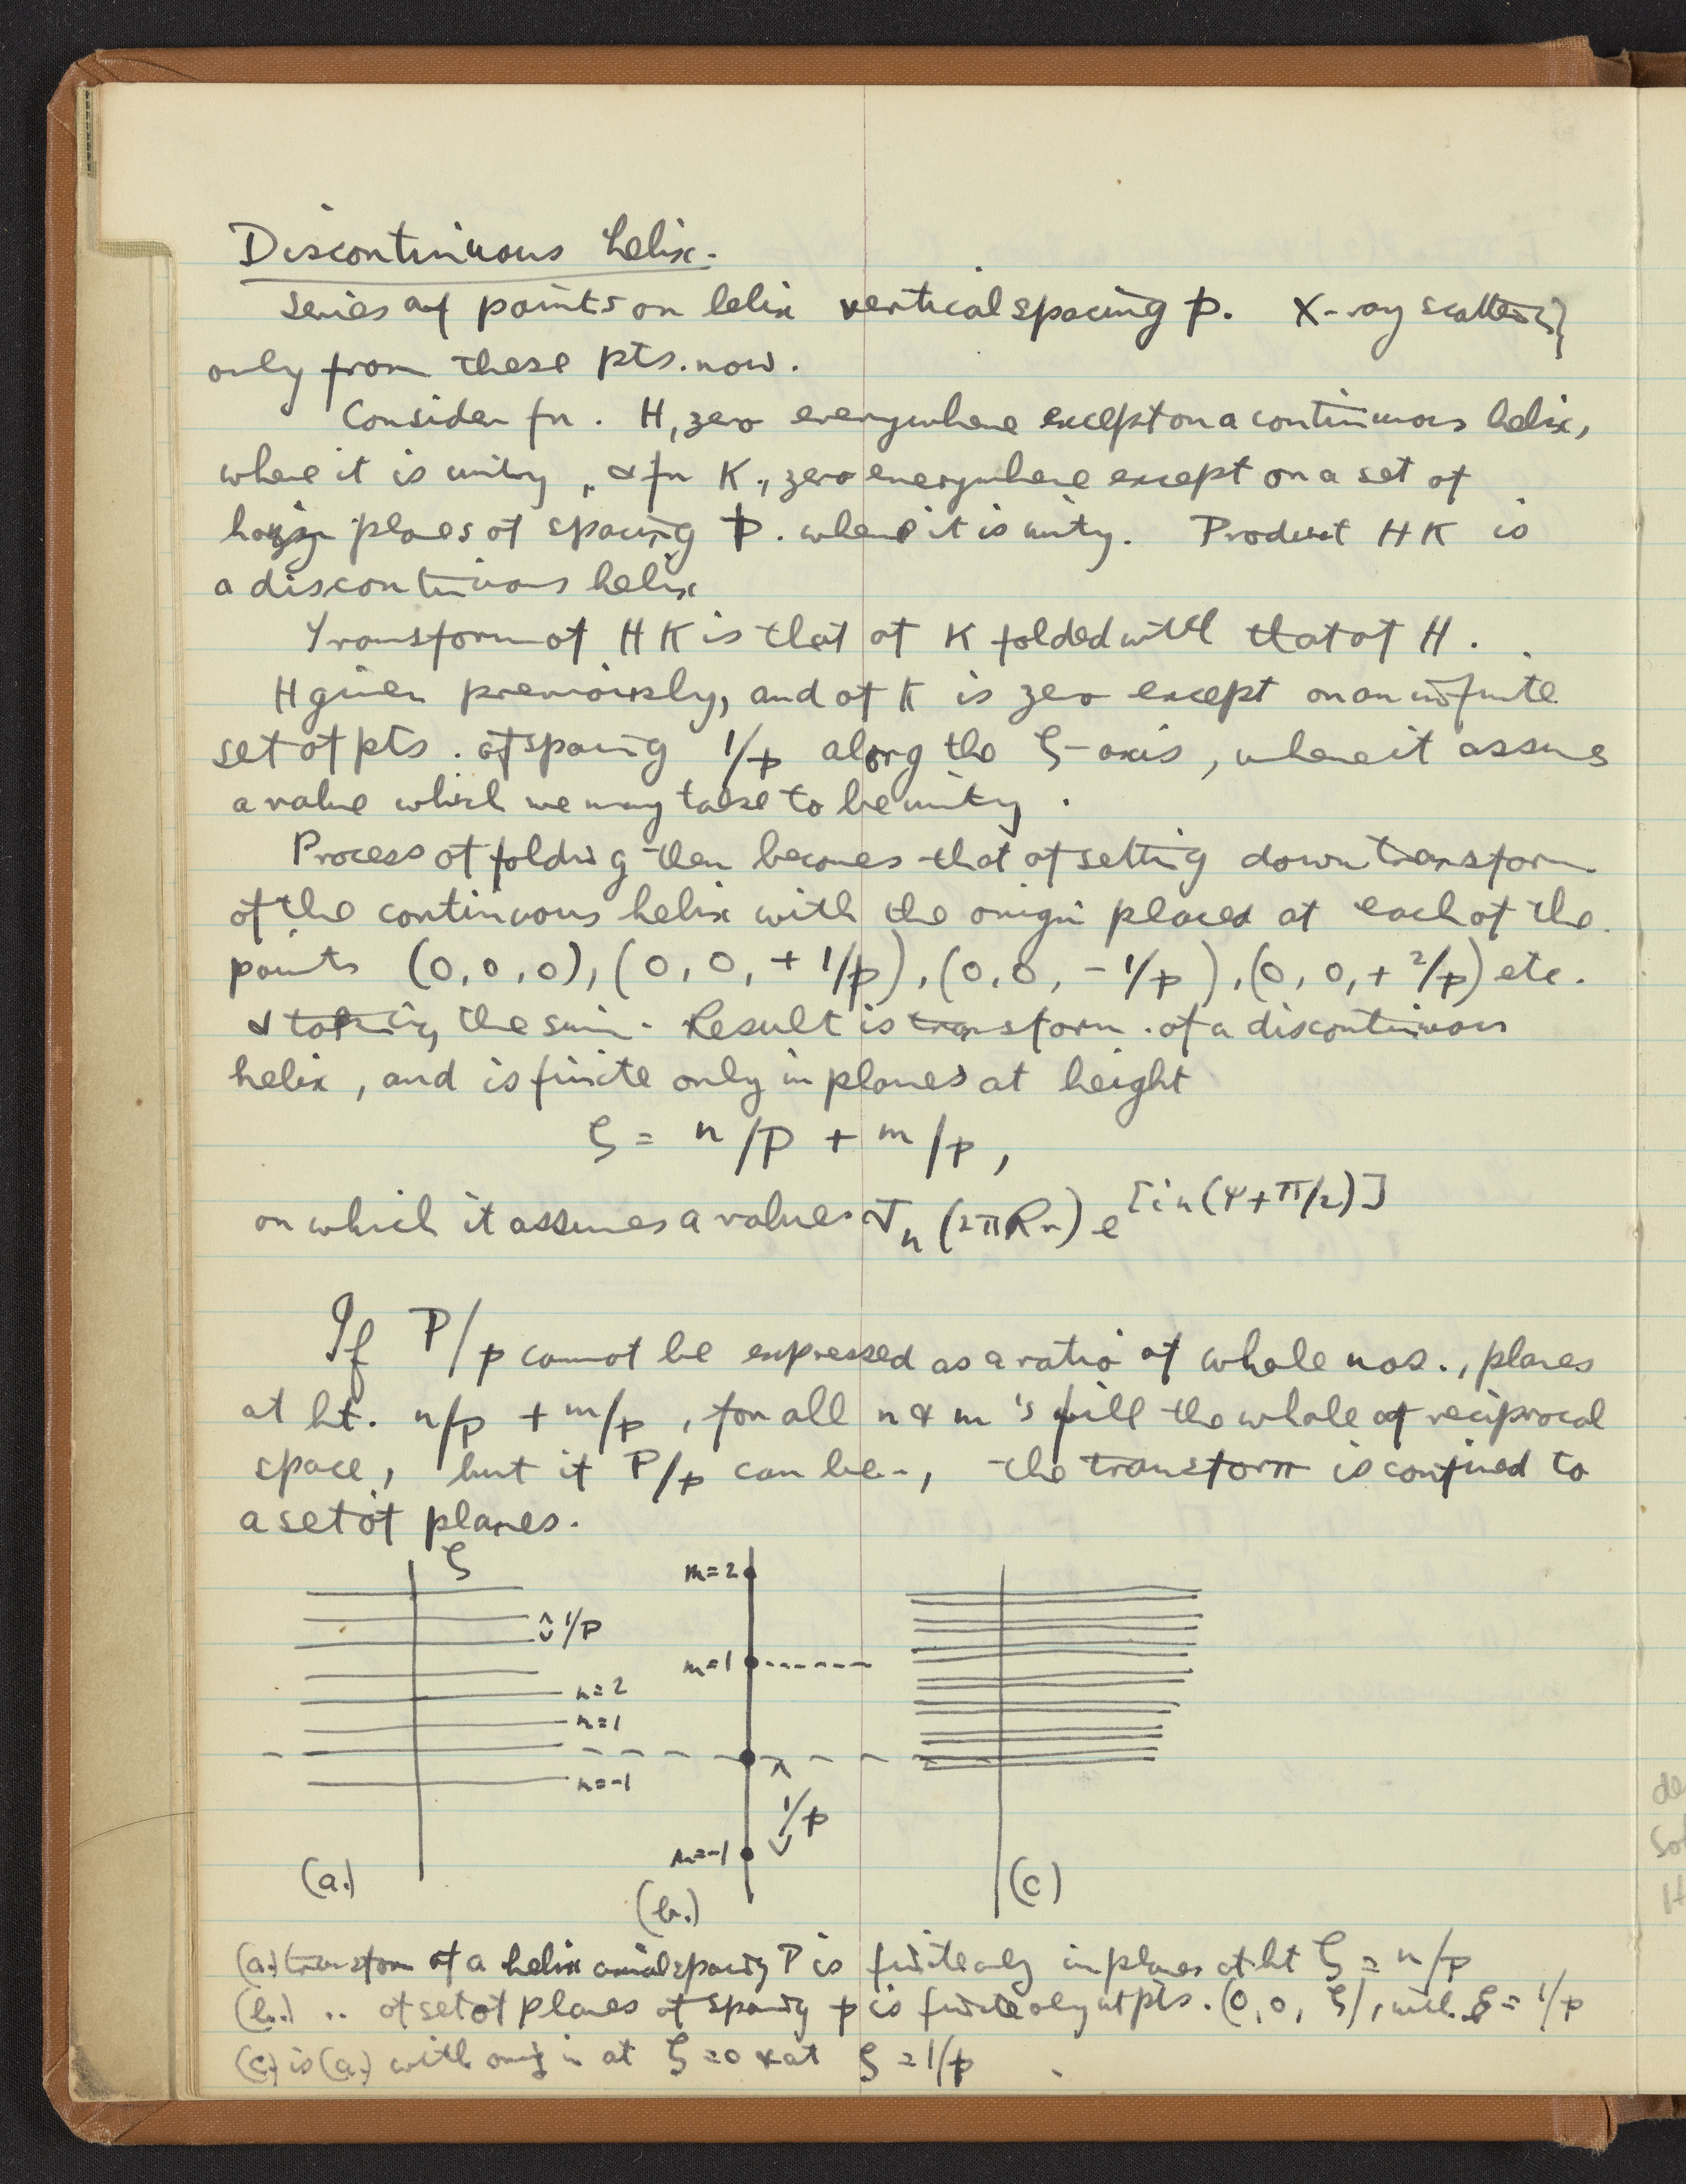 Discontinuous helix.
Series of points on helix vertical spacing p. X-ray scatters
only from these pts. now.
Consider fn. H, zero everywhere except on a continuous helix,
where it is unity, & fn K, zero everywhere except on a set of
planes of spacing p. where it is unity. Product HK is
a discontinuous helix
Transform of HK is that of K folded with that of H.
H given previously, and of K is zero except on an infinite
set of pts. of spacing 1/p along the ζ-axis, where it assumes
a value which we may take to be unity.
Process of folding then becomes that of setting down transform
of the continuous helix with the origin placed at each of the
points (0,0,0), (0,0,+1/p), (0,0,-1/p), (0,0,+2/p) etc.
& taking the sum. Result is transform. of a discontinuous
helix, and is finite only in planes at height
ζ = n/P + m/p,
on which it assumes a values Jn (2πRr) e[in(ψ+π/2)]
If P/p cannot be expressed as a ratio of whole nos., planes
at ht. n/p + m/p, for all n & m's fill the whole of reciprocal
space, but if P/p can be-, the transform is confined to
a set of planes.
ζ
1/P
n=2
n=1
n=-1
(a.)
m=2
m=1
1/p
m=-1
(b.)
(c)
(a.) transform of a helix axial spacing P is finite only in planes at ht ζ = n/p
(b.) .. of set of planes of spacing p is finite only at pts. (0,0,ζ), with ζ = 1/p
(c.) is (a.) with origin at ζ=0 & at ζ=1/p
de
So
H